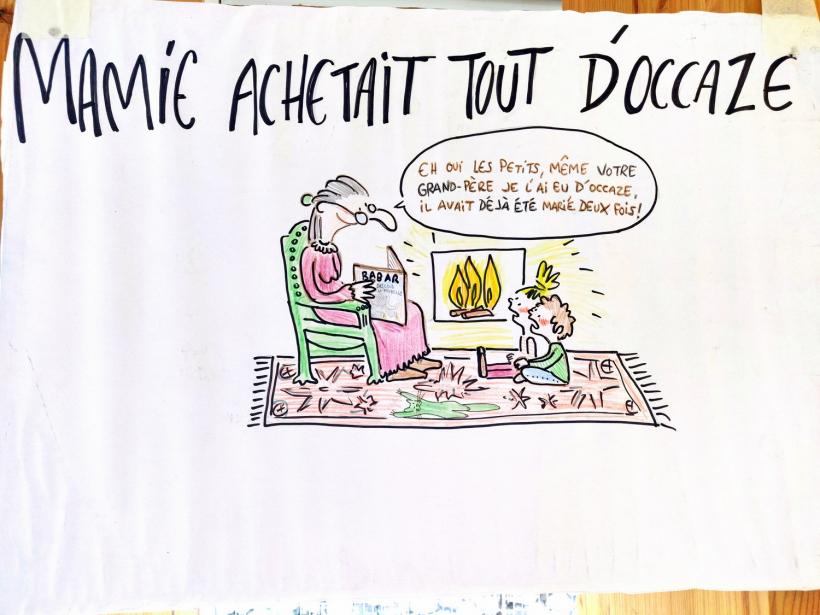 MAMiE ACHETAiT TOUT D'OCCAZE
EH OUI LES PETiTS, MÊME VOTRE
GRAND-PÈRE JE L'Ai EU D'OCCAZE,
iL AVAIT DÉJÀ ÉTÉ MARIÉ DEUX FOiS!
BABAR